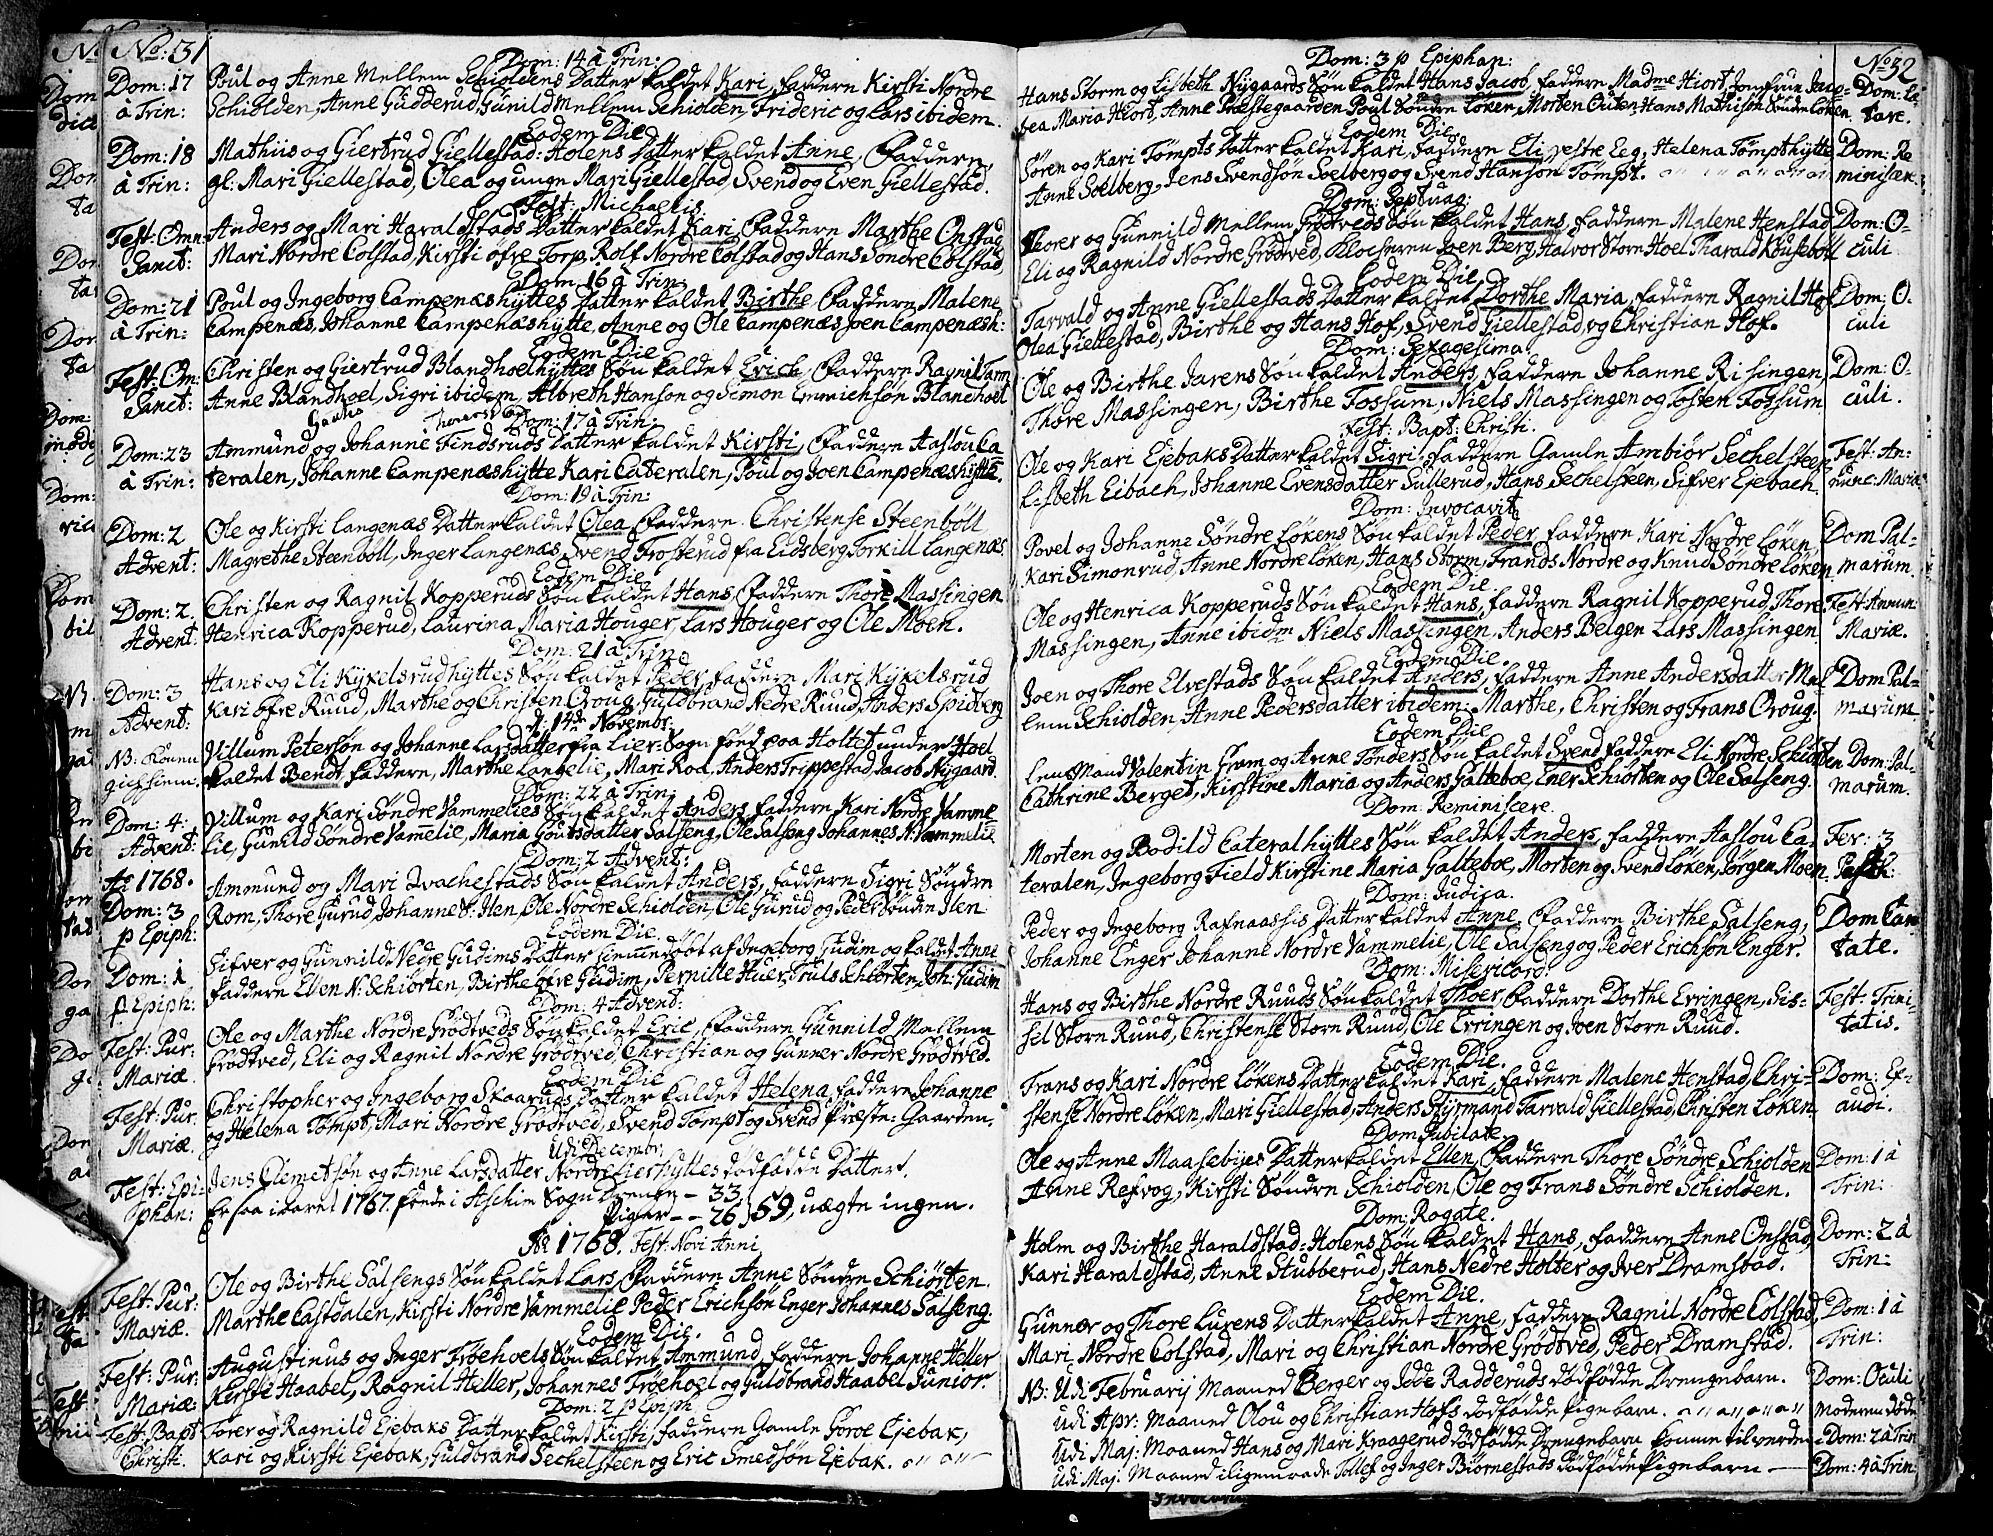 No: 31
Dom: 14 à Trin:
Dom: 17 à Trin:
Poul og Anne Mellem Schioldens Datter kaldet Kari, Faddere Kirsti Nordre
Schiolden, Anne Gudderud, Gunild Mellem Schiolden, Frideric og Lars ibidem.
Eodem Die
Dom: 18 à Trin:
Mathiis og Giertrud Giellestad: Holens Datter kaldet Anne, Faddere
gl: Mari Giellestad, Olea og unge Mari Giellestad, Svend og Even Giellestad.
Fest: Michaelis
Fest: Omn: Sanct:
Anders og Mari Haraldstads Datter kaldet Kari, Faddere Marthe Onstad
Mari Nordre Colstad, Kirsti øfre Torp, Rolf Nordre Colstad og Hans Søndre Colstad
Dom: 16 à Trin:
Dom: 21 à Trin:
Poul og Ingeborg Campenæshyttes Datter kaldet Birthe, Faddere Malene
Campenæs, Johanne Campenæshytte, Anne og Ole Campenæs, Joen Campenæsh:
Eodem Die
Fest: Om: Sanct:
Christen og Giertrud Blandhoelhyttes Søn kaldet Erich, Faddere Ragnil
Anne Blandhoel, Sigri ibidem, Albreth Hanson og Simon Emmichsøn Blanchoel
Dom: 17 à Trin:
Dom: 23 à Trin:
Ammund og Johanne Findsruds Datter kaldet Kirsti, Faddere Aaslou Ca
teralen, Johanne Campenæshytte Kari Cateralen, Poul og Joen Campenæshytte.
Dom: 19 à Trin:
Dom: 2 Advent:
Ole og Kirsti Langenæs Datter kaldet Olea, Faddere Christense Steenbøll
Magrethe Steenbøll, Inger Langenæs, Svend Frosterud fra Eidsberg Torkill Langenæs.
Eodem Die
Dom: 2. Advent
Christen og Ragnil Kopperuds Søn kaldet Hans, Faddere Thore Massingen
Henrica Kopperud, Laurina Maria Houger, Lars Houger og Ole Moen.
Dom: 21 à Trin:
Dom: 3 Advent:
Hans og Eli Kykelsrudhyttes Søn kaldet Peder, Faddere Mari Kykelsrud
Kari øfre Ruud, Marthe og Christen Oroug, Guldbrand Nedre Ruud, Anders Spidberg
d. 14de Novembr:
NB: Konen
Villum Petersøn og Johanne Larsdatter fra Lier-Sogn fød paa Holtet under Hoel
kaldet Bendt, Faddere, Marthe Langelie, Mari Roa, Anders Trippestad, Jacob Nygaard.
Dom: 22 à Trin:
Dom: 4 Advent:
Villum og Kari Søndre Vammelies Søn kaldet Anders, Faddere Kari Nordre Vamme
lie, Gunild Søndre Vamelie, Maria Goutsdatter Salseng, Ole Salseng, Johannes N: Vammelie
Dom: 2 Advent:
Ao 1768. Dom: 3 p Epiph:
Ammund og Mari Trachestads Søn kaldet Anders, Faddere Sigri Søndre
Rom, Thore Gurud, Johanne S: Ilen, Ole Nordre Schiolden, Ole Gurud og Peder Søndre Ilen
Eodem Die.
Dom: 1 p Epiph:
Sifver og Gunnild Nedre Gudims Datter hjemmedøbt af Ingeborg Gudim og kaldet Anne
Faddere Ellen N: Schiørten, Birthe øvre Gudim, Pernille Huer, Truls Schiørten, Joh: Gudim
Dom: 4 Advent:
Fest: Pur: Mariæ.
Ole og Marthe Nordre Grødtveds Søn kaldet Eric, Faddere Gunnild Mellem
Grødtved, Eli og Ragnil Nordre Grødtved, Christian og Gunner Nordre Grødtved.
Eodem Die
Fest: Pur. Mariæ.
Christopher og Ingeborg Skaaruds Datter kaldet Helena, Faddere Johanne
og Helena Tømpt, Mari Nordre Grødtved, Svend Tømpt og Svend Præste-Gaarden.
Udi Decembr:
Fest: Epiphan:
Jens Clemetsøn og Anne Larsdatter Nordre Lierhyttes dødfødde Datter.
Er saa i aaret 1767. føde i Aschim Sogn Drenge - 33
Piger - - 26 } 59, uægte ingen.
Ao 1768. Fest: Novi Anni
Fest: Pur: Mariæ.
Ole og Birthe Salsengs Søn kaldet Lars, Faddere Anne Søndre Schiørten.
Marthe Castdalen, Kirsti Nordre Vammelie Peder Erichsøn Enger Johannes Salseng.
Eodem Die.
Fest: Pur: Mariæ:
Augustinus og Inger Frøehoels Søn kaldet Ammund, Faddere Johanne Heller
Kirsti Haabel, Ragnil Heller, Johannes Frøehoel og Guldbrand Haabel Junior.
Dom: 2 p Epiph.
Fest: Bapt Christi.
Torer og Ragnild Ejebaks Datter kaldet Kirsti, Faddere Gamle Goroe Ejebak,
Kari og Kirsti Ejebak, Guldbrand Sechelsteen og Eric Smedsøn Ejebak.
No 32
Dom: 3 p Epiphan:
Hans Storm og Lisbeth Nygaards Søn kaldet Hans Jacob, Faddere Madme Hiort, Jomfrue Jaco-
bea Maria Hiort, Anne Præstegaarden Poul Søndre Løken, Morten Outen, Hans Mathisøn Søndre Løken.
Dom: Lætare.
Eodem Die
Søren og Kari Tømpts Datter kaldet Kari, Faddere Eli vestre Eeg, Helena Tømpthytte
Anne Soelberg, Jens Svendsøn Soelberg og Svend Hanson Tømpt.
Dom: Reminiscer.
Dom: Septuag:
Thorer og Gunnild Mellem Grødtveds Søn kaldet Hans, Faddere Malene Henstad
Eli og Ragnild Nordre Grødtved, Klocheren Joen Berg, Halvor Storn Hoel Tharald Kouseboll
Dom: Oculi
Eodem Die
Tarvald og Anne Giellestads Datter kaldet Dorthe Maria, Faddere Ragnil Hof
Olea Giellestad, Birthe og Hans Hof, Svend Giellestad og Christian Hof.
Dom: Oculi
Dom: Sexagesima.
Ole og Birthe Jarens Søn kaldet Anders, Faddere Johanne Risingen,
Thore Massingen, Birthe Fossum, Niels Massingen og Tosten Fossum
Dom: Oculi.
Fest: Bapt: Christi.
Ole og Kari Ejebaks Datter kaldet Sigri, Faddere Gamle Ambiør Sechelsteen
Lisbeth Eibach, Johanne Evensdatter Sullerud, Hans Sechelsteen, Sifver Ejebach.
Fest: Annunc: Mariæ
Dom: Invocavit
Povel og Johanne Søndre Løkens Søn kaldet Peder, Faddere Kari Nordre Løken
Kari Simonrud, Anne Nordre Løken, Hans Storm, Frands Nordre og Knud Søndre Løken
Dom Palmarum.
Eodem Die
Ole og Henrica Kopperuds Søn kaldet Hans, Faddere Ragnil Kopperud, Thore
Massingen, Anne ibidm Niels Massingen, Anders Belgen Lars Massingen
Fest: Annun: Mariæ.
Eodem Die.
Joen og Thore Elvestads Søn kaldet Anders, Faddere Anne Andersdatter Mel
lem Schiolden, Anne Pedersdatter ibidem: Marthe, Christen og Frans Oroug.
Dom Palmarum
Eodem Die
Lens Mand Valentin Gram og Anne Tønders Søn kaldet Svend, Faddere Eli Nordre Schiørten
Cathrine Berger, Kirstine Maria og Anders Galteboe, Ener Schiørten og Ole Salseng.
Dom: Palmarum.
Dom: Reminiscere.
Morten og Bodild Cateralhyttes Søn kaldet Anders, Faddere Aaslou Ca-
teralen, Ingeborg Field Kirstine Maria Galteboe, Morten og Svend Løken, Jørgen Moen.
Fer: 3 Pasch:
Dom: Judica.
Peder og Ingeborg Rafnaassis Datter kaldet Anne, Faddere Birthe Salseng,
Johanne Enger Johanne Nordre Vammelie, Ole Salseng og Peder Erichsøn Enger.
Dom Cantate.
Dom: Misericord:
Hans og Birthe Nordre Ruuds Søn kaldet Thoer, Faddere Dorthe Erringen, Sis-
sel Storn Ruud, Christense Storn Ruud, Ole Erringen og Joen Storn Ruud.
Fest: Trinitatis.
Eodem Die.
Frans og Kari Nordre Løkens Datter kaldet Kari, Faddere Malene Henstad, Chri-
stense Nordre Løken, Mari Giellestad, Anders Styrmand Tarvald Giellestad, Christen Løken
Dom: Exaudi.
Dom Jubilate
Ole og Anne Maasebyes Datter kaldet Ellen, Faddere Thore Søndre Schiolden
Anne Refvog, Kirsti Søndre Schiolden, Ole og Frans Søndre Schiolden.
Dom: 1 à Trin:
Dom: Rogate.
Holm og Birthe Haraldstad-Holens Søn kaldet Hans, Faddere Anne Onstad,
Kari Haraldstad, Anne Stubberud, Hans Nedre Holter og Iver Dramstad.
Dom: 2 à Trin:
Eodem Die.
Gunner og Thore Lurens Datter kaldet Anne, Faddere Ragnil Nordre Colstad,
Mari Nordre Colstad, Mari og Christian Nordre Grødtved, Peder Dramstad.
Dom: 1 à Trin:
NB: Udi Februarij Maaned Berger og Idde Radderuds dødfødde Drengebarn.
Dom: Oculi
udi Apr: Maaned Olou og Christian Hofs dødfødde Pigebarn.
Moderen døde
Udi Maj: Maaned Hans og Mari Kraagerud dødfødde Drengebarn komme til verden
Dom: 2 à Trin
Udi Maj: Maaned iligemaade Tollef og Inger Biørnestads dødfødde Pigebarn
Dom: 4 à Trin.